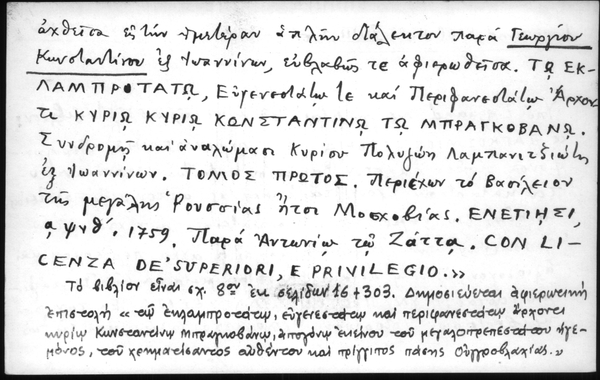 αχθεῖσα εἰς τὴν ἡμετέραν ἁπλῆν διάλεκτον παρὰ Γεωργίου
Κωνσταντίνου ἐξ Ἰωαννίνων, εὐλαβῶς τε ἀφιερωθεῖσα. ΤΩι ΕΚ-
ΛΑΜΠΡΟΤΑΤΩι, Εὐγενεστάτῳ τε καὶ Περιφανεστάτῳ Ἄρχον
τι ΚΥΡΙΩι ΚΥΡΙΩι ΚΩΝΣΤΑΝΤΙΝΩι ΤΩι ΜΠΡΑΓΚΟΒΑΝΩι.
Συνδρομῇ καὶ ἀναλώμασι Κυρίου Πολυζώη Λαμπανιτζιώτη
ἐξ Ἰωαννίνων. ΤΟΜΟΣ ΠΡΩΤΟΣ. Περιέχων τὸ Βασίλειον
τῆς μεγάλης Ῥουσσίας ἤτοι Μοσχοβίας. ΕΝΕΤΙΗΣΙ,
αψνθ΄. 1759. Παρὰ Ἀντωνίῳ τῷ Ζάττα. CON LI-
CENZA DE' SUPERIORI, E PRIVILEGIO.»
Τὸ βιβλίον εἶναι σχ. 8ον ἐκ σελίδων 16 + 303. Δημοσιεύεται ἀφιερωτικὴ
ἐπιστολὴ «τῷ ἐκλαμπροτάτῳ, εὐγενεστάτῳ καὶ περιφανεστάτῳ ἄρχοντι
κυρίῳ Κωνσταντίνῳ Μπραγκοβάνῳ, ἀπογόνῳ ἐκείνου τοῦ μεγαλοπρεπεστάτου ἡγε-
μόνος, τοῦ χρηματίσαντος αὐθέντου καὶ πρίγγιπος πάσης Οὐγγροβλαχίας.»